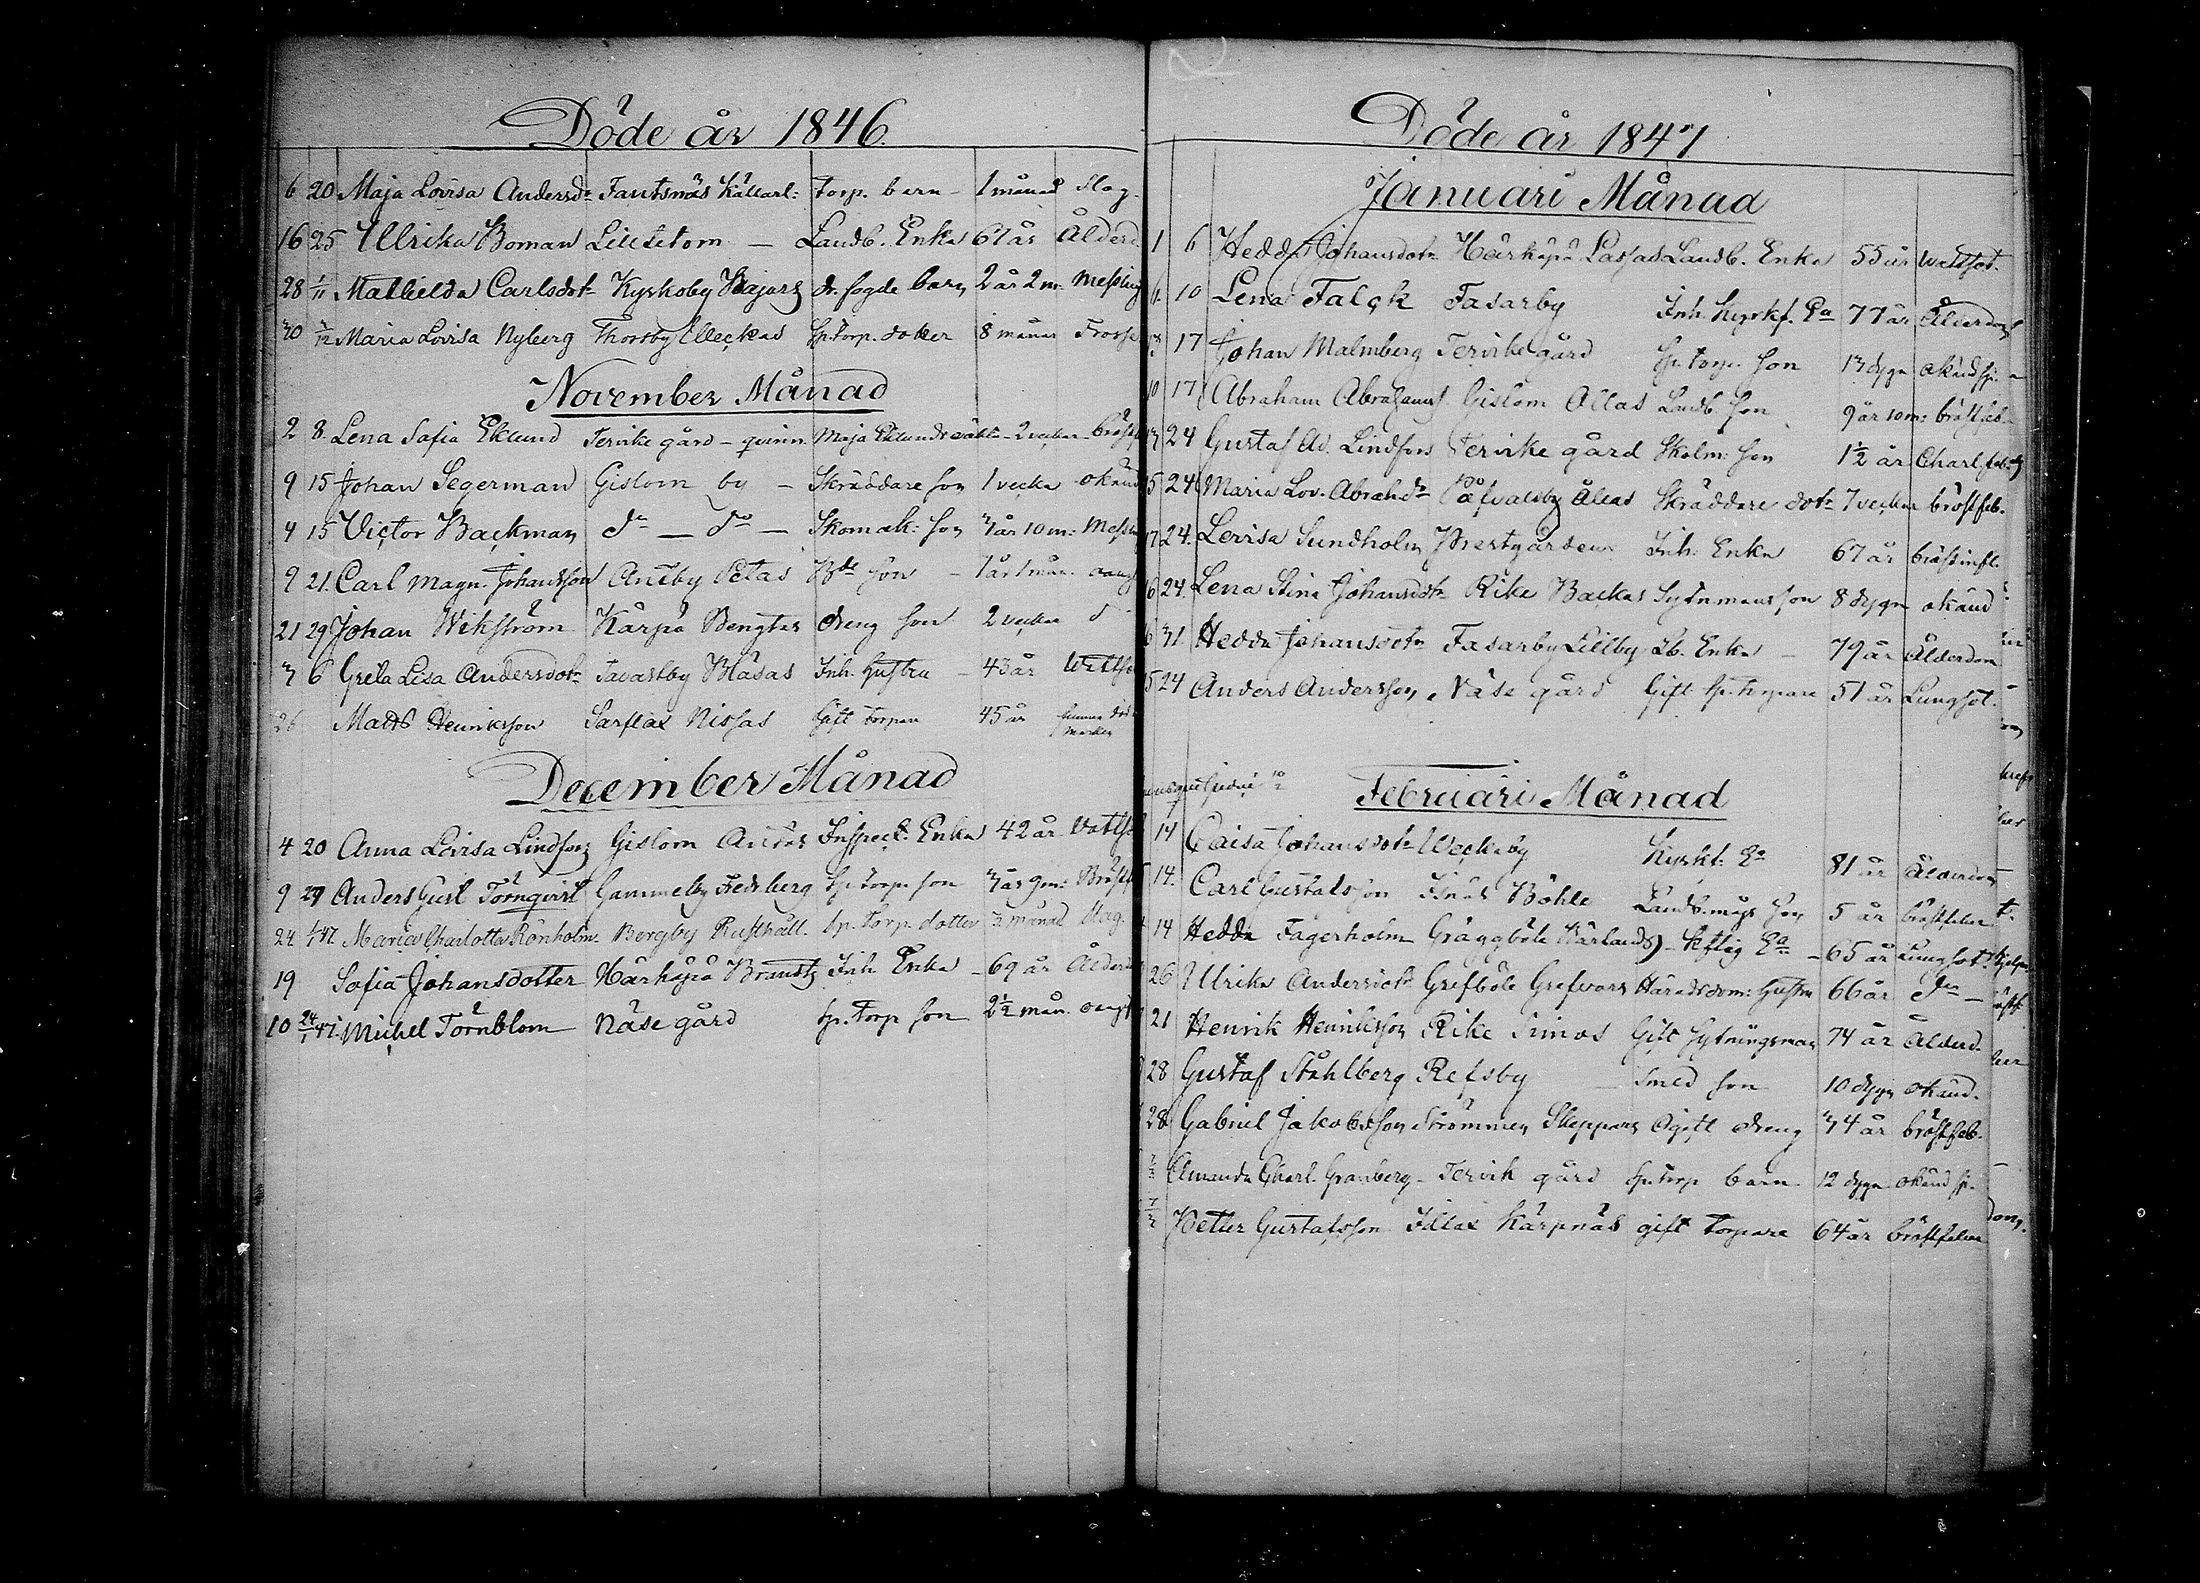 Döde år 1846.
6 20 Maja Lovisa Andersdr Fantsnäs Källarl: Torp. barn - 1 månad Slag.
16 25 Ullrika Boman Lillstom - Landb. Enka 67 år Ålderd
28 1/11 Mathilda Carlsdotr Kyrkoby Bajars dr. fogde barn 2 år 2 m. Messling
30 Maria Lovisa Nyberg Thorsby Cleckas sp. torp. dotter 8 månar Frossa
November Månad
2 8. Lena Safia Eklund Tervike gård - qvinn. Maja Eklunds 2 veckor bröstf
9 15 Johan Segerman Gislom by - Skräddare son 1 vecka okänd
4 15 Victor Backman do - do - Skomak: son 3 år 10 m: Messl
9 21. Carl Magn. Johansson Antby Petas Bde son - 1 år 1 mån.
21 29 Johan Wikström Kärpä Bengtas dreng son 2 veckor d
3 6 Greta Lisa Andersdotr Tavastby Blåsas Inh. Hustru - 43 år Wattso
26 Matts Henriksson Sarflax Nissas Gift torpare 45 år funnen död i marken
December Månad
4 20 Anna Lovisa Lindfors Gislom Inspect. Enka 42 år Vattso
9 27 Anders Gust Törnqvist Gammelby Fedsberg sp. torp. son 3 år 9 m: Bröstf
24. 1/1 47. Maria Charlotta Rönholm. Bergby Rusthåll. sp. torp. dotter 3 månad Slag.
19 Sofia Johansdotter Härkäpä Brausts Inh. Enka - 69 år Ålderd
10 24/1 47. Michel Törnblom Näse gård sp. torp son 2½ mån.
Döde år 1847
Januari Månad
1 6 Hedda Johansdotr Härkäpä Lassas Landb. Enka 55 år Wattsot.
6. 10 Lena Falck Fasarby Inh. Kyrkf. Ea 77 år Ålderdom
13 17 Johan Malmberg Tervike gård sp. torp. son 13 dygn okänd sju
10 17 Abraham Abrahamss. Gislom Ollas Landb. son 9 år 10 m: bröstfeb.
13 24 Gustaf Ad. Lindfors Tervike gård Skolm: son 1½ år Charl. feb.
15 24 Maria Lov. Abrahdr Påfvalsby Ållas Skräddare dotr 7 veckor bröstfeb.
17 24. Lovisa Sundholm Prestgården Inh: Enka 67 år bröstinfl.
16 24. Lena Stina Johansdotr Rike Backas Sytnmans son 8 dygn okänd
6 31 Hedda Johansdotr Fasarby Lillby Lb. Enka - 79 år Ålderdom
15 24 Anders Andersson, Näse gård Gift. sp. torpare 51 år Lungsot.
Februari Månad
14 Caisa Johansdotr Weckaby Kyrkf: Ea 81 år Ålderdom
14. Carl Gustafsson Isnäs Böhle Landb. mågs son 5 år bröstfeber
14 Hedda Fagerholm Gräggböle Kärlands) - kftig Ea - 65 år Lungsot.
26 Ulrika Andersdotr Grefböle Grefvars Häradsdom: Hustru 66 år do -
21 Henrik Henriksson Rike Simas Gift Sytningsman 74 år Ålderd.
28 Gustaf Ståhlberg Refsby - Smed son 10 dygn okänd.
28 Gabriel Jakobsson Strömmen Skeppars Ogift dreng 34 år bröstfeb.
Amanda Charl. Granberg - Tervik gård sp. torp barn 12 dygn okänd sju
7/3 Petter Gustafsson Illax Kärpnäs gift torpare 64 år bröstfeber